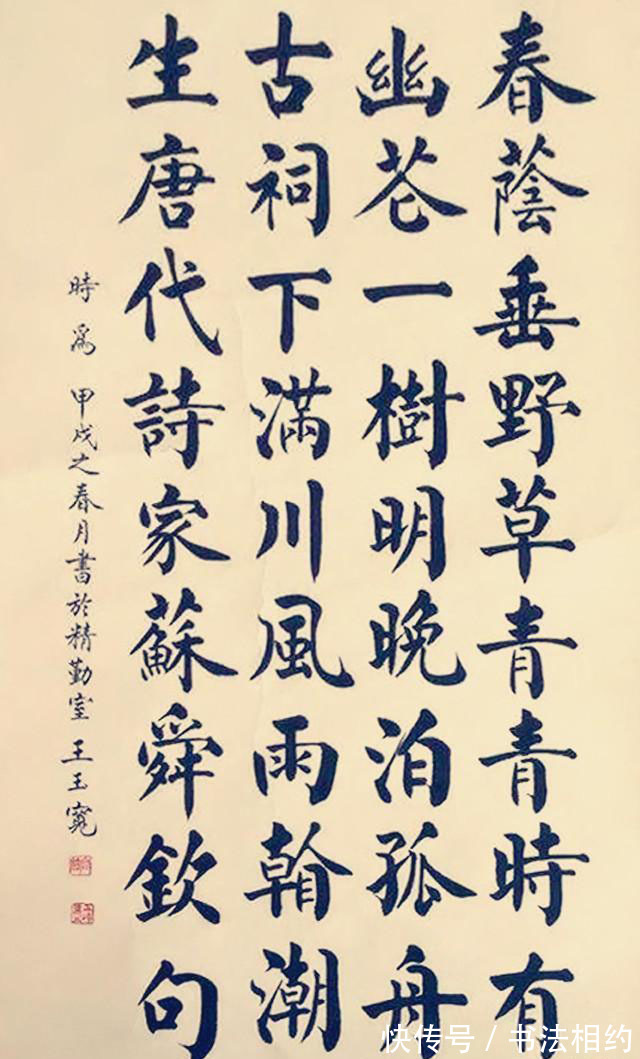 春蔭垂野草青青時有
幽芲一樹明晚泊孤舟
古祠下滿川風雨看潮
生唐代詩家蘇舜欽句
時爲甲戌之春月書於精勤室王玉寬
快传号 / 书法相约